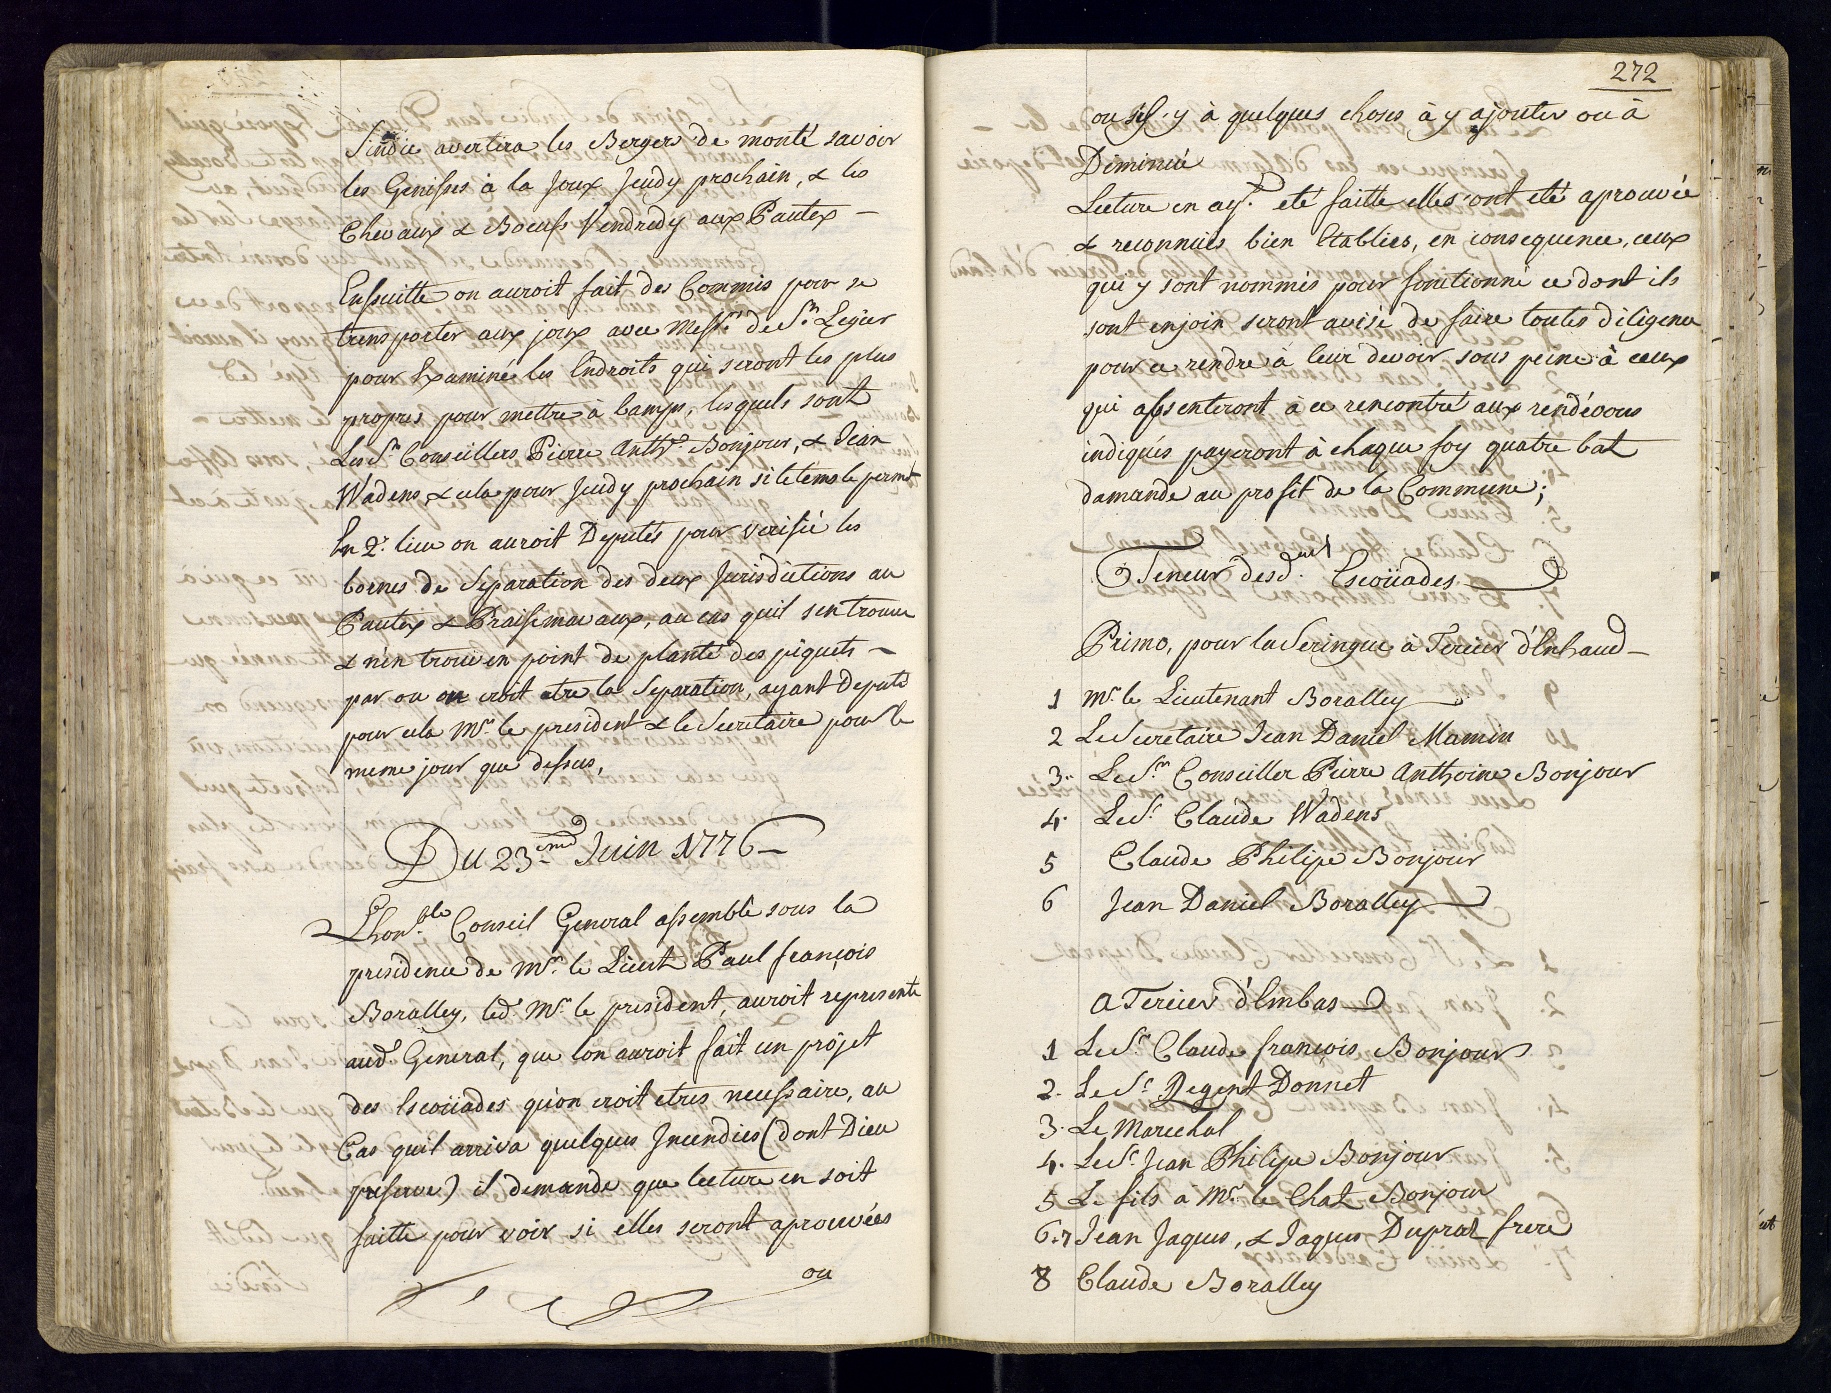 Sindic avertira les Bergers de monté savoir
les Genisses à la Joux Jeudy prochain, & les
Chevaux & Boeufs Vendredy aux Pautex –
Ensuitte on auroit fait des Commis pour se
transporter aux joux avec Messrs de St Legier
pour Examiné les Endroits qui seront les plus
propres pour mettre à bamps, lesquels sont
Les Srs Conseillers Pierre Anthe Bonjour, & Jean
Wadens & cela pour Jeudy prochain si le tems le permet
En 2e lieu on auroit Deputés pour verifié les
bornes de Separation des deux Jurisdictions au
Pautex & Praissimaraux, au cas quil sen trouve
& n'en trouven point de planté des piquets –
par ou on croit etre la Separation, ayant Deputé
pour cela Mr le president & le Secretaire pour le
meme jour que dessus,
Du 23eme Juin 1776 –
L'honble Conseil General assemblé sous la
presidence de Mr le Lieut Paul françois
Boralley, led Mr le president, auroit representé
aud General, que lon auroit fait un projet
des Escoüades qu'on croit etres necessaire, au
Cas quil arriva quelques Incendies (dont Dieu
preserve) il demande que lecture en soit
faitte pour voir si elles seront aprouvées
ou
272
ou sil y à quelques choses à y ajouter ou à
Diminué
Lecture en ayt eté faitte elles ont eté aprouvée
& reconnuës bien Etablies, en consequence, ceux
qui y sont nommés pour fonctionné ce dont ils
sont enjoin seront avisé de faire toutes diligence
pour ce rendre à leur devoir sous peine à ceux
qui absenteront à ce rencontré aux rendévous
indiqués payeront à chaque foy quatre bat
damande au profit de la Commune;
Teneur desd. Escoüades
Primo, pour la Seringue à Tercier d'Enhaud –
1 Mr le Lieutenant Boralley
2 Le Secretaire Jean Daniel Mamin
3. Le Sr Conseiller Pierre Anthoine Bonjour
4. Le Sr Claude Wadens
5 Claude Philipe Bonjour
6 Jean Daniel Boralley
A Tercier d'Embas
1 Le Sr Claude françois Bonjour
2. Le Sr Regent Donnet
3. Le Marechal
4. Le Sr Jean Philipe Bonjour
5 Le fils à Mr le Chat Bonjour
6.7 Jean Jaques, & Jaques Duprat frere
8 Claude Boralley